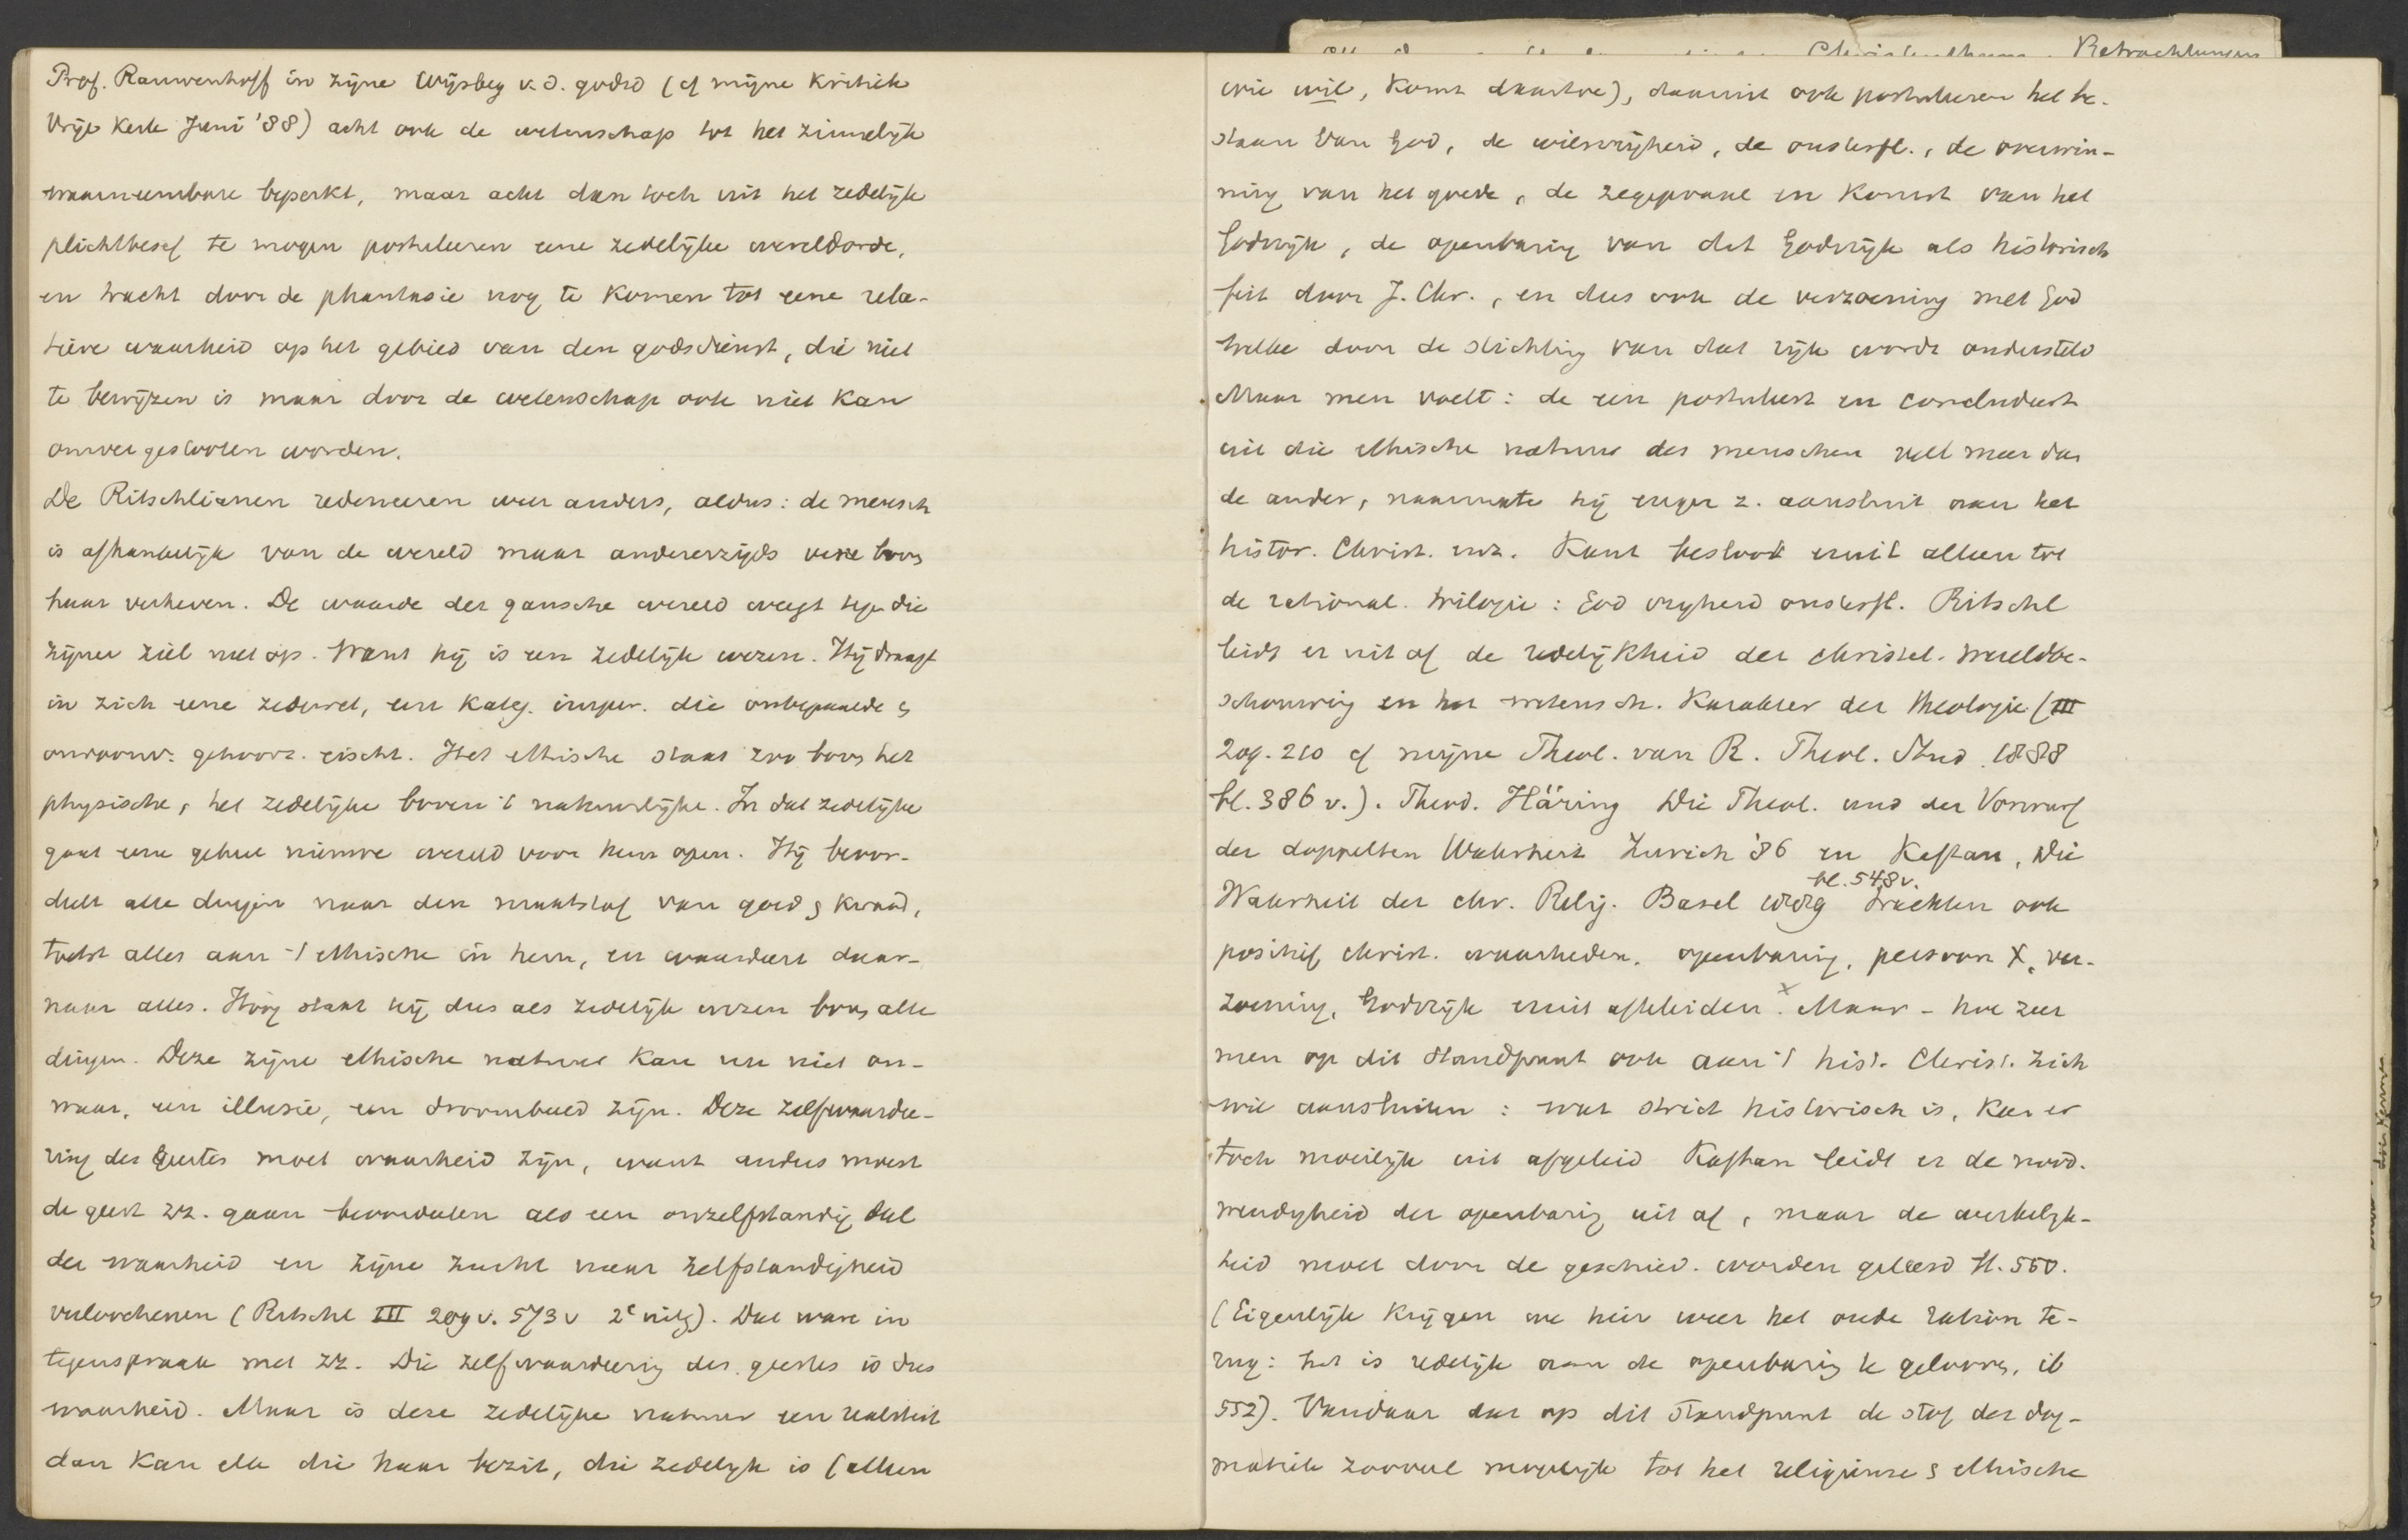 Prof. Rauwenhoff in zijne Wijsbeg v. d. godsd (cf mijne Kritiek
Vrije Kerk Juni '88) acht ook de wetenschap tot het zinnelijk
waarneembare beperkt, maar acht dan toch uit het zedelijk
plichtbesef te mogen postuleeren eene zedelijke wereldorde,
en tracht door de phantasie nog te komen tot eene rela-
tieve waarheid op het gebied van den godsdienst, die niet
te bewijzen is maar door de wetenschap ook niet kan
omvergestooten worden.
De Ritschlianen redeneeren weer anders, aldus: de mensch
is afhankelijk van de wereld maar anderzijds verre bov.
haar verheven. De waarde der gansche wereld weegt tegen die
zijner ziel niet op. Want hij is een zedelijk wezen. Hij draagt
in zich eene zedewet, een kateg. imper. die onbepaalde &
onvoorw. gehoorz. eischt. Het ethische staat zoo bov. het
physische, het zedelijke boven 't natuurlijke. In dat zedelijke
gaat eene geheel nieuwe wereld voor hem open. Hij beoor-
deelt alle dingen naar den maatstaf van goed & kwaad,
toetst alles aan 't ethische in hem, en waardeert daar-
naar alles. Hoog staat hij dus als zedelijk wezen bov. alle
dingen. Deze zijne ethische natuur kan nu niet on-
waar, een illusie, een droombeeld zijn. Deze zelfwaardee-
ring des Geestes moet waarheid zijn, want anders moest
de geest zz. gaan beoordeelen als een onzelfstandig deel
der waarheid en zijne zucht naar zelfstandigheid
verloochenen (Ritschl III 209 v. 573 v 2e uitg). Dat ware in
tegenspraak met zz. Die zelfwaardeering des geestes is dus
waarheid. Maar is deze zedelijke natuur een realiteit
dan kan elk die haar bezit, die zedelijk is (alleen
Christenthum. Betrachtungen
wie wil, komt daartoe), daaruit ook postuleeren het be-
staan van God, de wilsvrijheid, de onsterfl., de overwin-
ning van het goede, de zegepraal en komst van het
Godsrijk, de openbaring van dat Godsrijk als historisch
feit door J. Chr., en dus ook de verzoening met God
welke door de stichting van dat rijk wordt ondersteld
Maar men voelt: de een postuleert en concludeert
uit die ethische natuur des menschen veel meer dan
de ander, naarmate hij enger z. aansluit aan het
histor. Christ. enz. Kant besloot eruit alleen tot
de rational. trilogie: God vrijheid onsterfl. Ritschl
leidt er uit af de redelijkheid der christel. wereldbe-
schouwing en het wetensch. karakter der theologie (III
209-210 cf mijne Theol. van R. Theol. Stud. 1888
bl. 386 v.). Theod. Häring Die Theol. und der Vorwurf
der doppelten Wahrheit Zurich '86 en Kaftan, Die
bl. 548 v.
Wahrheit der chr. Relig. Basel 1889 trachten ook
positief christ. waarheden, openbaring, persoon X, ver-
zoening, Godsrijk eruit afteleiden. x Maar - hoe zeer
men op dit standpunt ook aan 't hist. Christ. zich
wil aansluiten: wat strict historisch is, kan er
toch moeilijk uit afgeleid Kaftan leidt er de nood-
wendigheid der openbaring uit af, maar de werkelijk-
heid moet door de geschied. worden geleerd bl. 550.
(Eigenlijk krijgen we hier weer het oude ration te-
rug: het is redelijk aan de openbaring te gelooven, ib
552). Vandaar dat op dit standpunt de stof der dog-
matiek zooveel mogelijk tot het religieuse & ethische